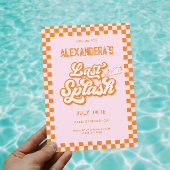 ALEXANDERA'S
Last
Splash
JULY 14-16